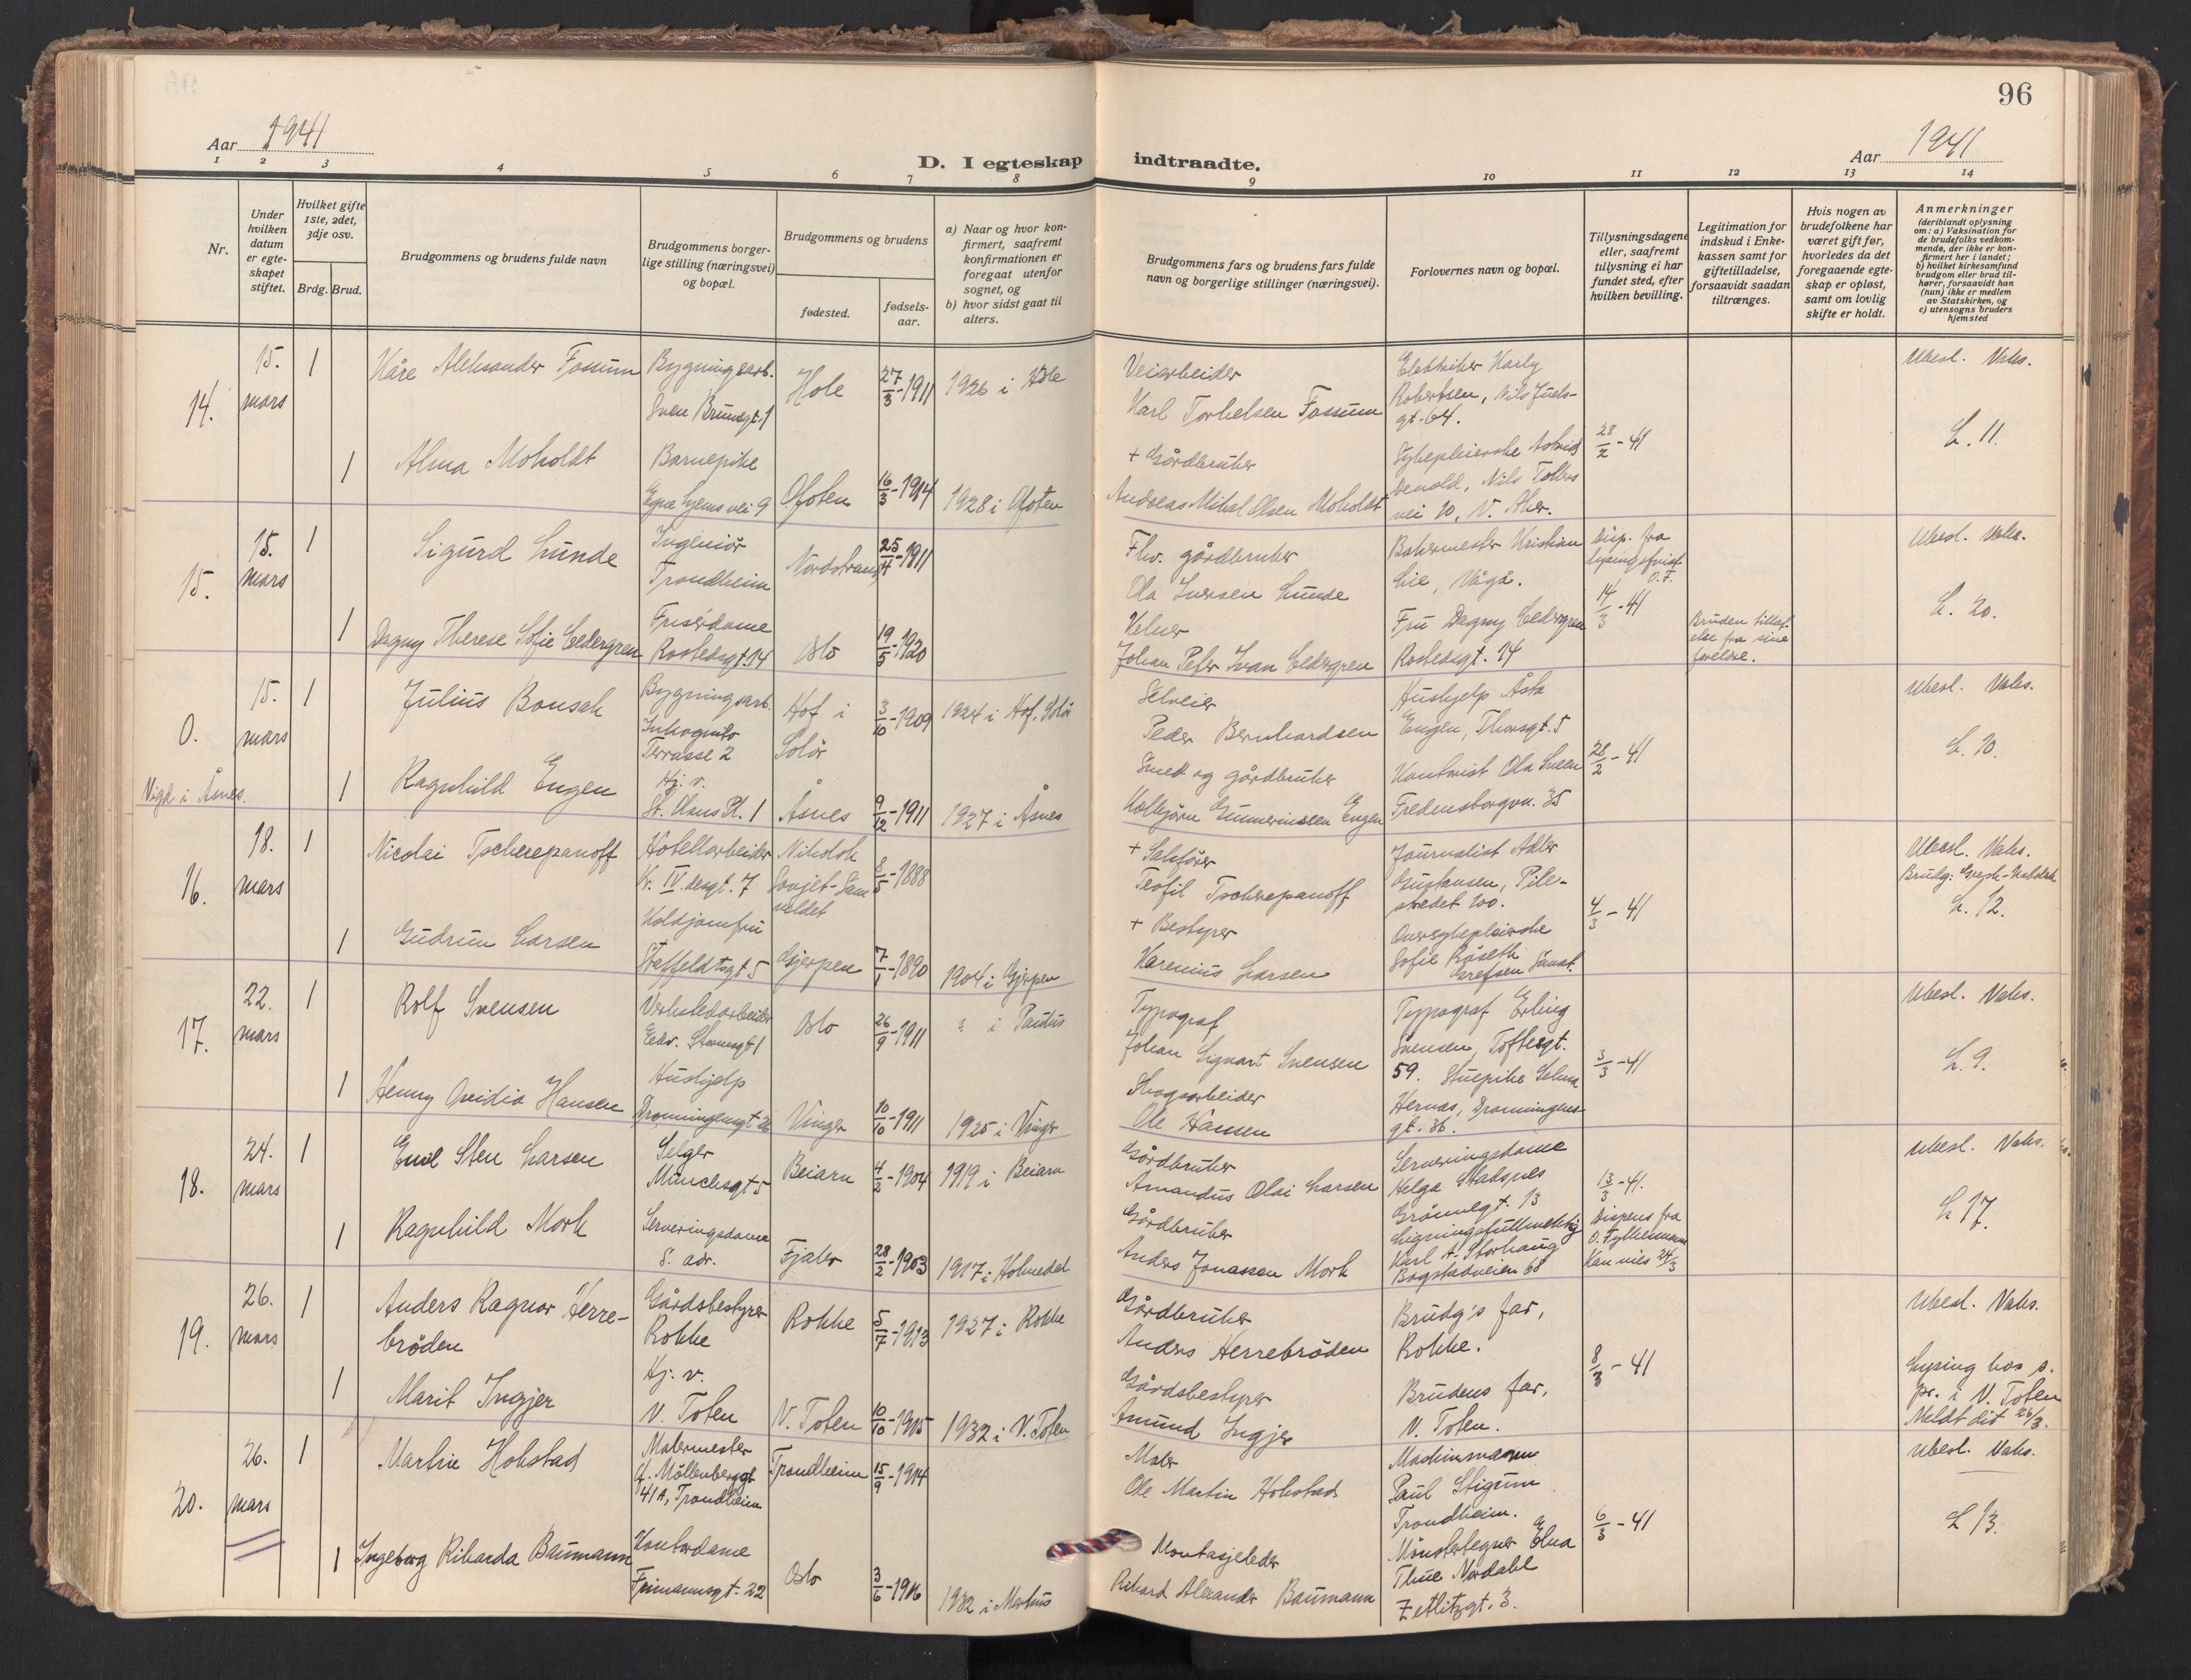 96
Aar 1941
D. I egteskap indtraadte.
Aar 1941
1 2 3 4 5 6 7 8 9 10 11 12 13 14
Nr.
Under hvilken datum er egteskapet stiftet.
Hvilket gifte 1ste, 2det, 3dje osv.
Brdg. Brud.
Brudgommens og brudens fulde navn
Brudgommens borgerlige stilling (næringsvei) og bopæl.
Brudgommens og brudens
fødested.
fødselsaar.
a) Naar og hvor konfirmert, saafremt konfirmationen er foregaat utenfor sognet, og
b) hvor sidst gaat til alters.
Brudgommens fars og brudens fars fulde navn og borgerlige stillinger (næringsvei).
Forlovernes navn og bopæl.
Tillysningsdagene eller, saafremt tillysning ei har fundet sted, efter hvilken bevilling.
Legitimation for indskud i Enkekassen samt for giftetilladelse, forsaavidt saadan tiltrænges.
Hvis nogen av brudefolkene har været gift før, hvorledes da det foregaaende egteskap er opløst, samt om lovlig skifte er holdt.
Anmerkninger
(deriblandt oplysning om: a) Vaksination for de brudefolks vedkommende, der ikke er konfirmert her i landet; b) hvilket kirkesamfund brudgom eller brud tilhører, forsaavidt han (hun) ikke er medlem av Statskirken, og c) utensogns bruders hjemsted
14. 15. mars 1 Kåre Aleksander Fossum Bygningsarb. Sven Brunsgt. 1 Hole 27/3-1911 1926 i Hole
Veiarbeider Karl Torkelsen Fossum
Elektriker Karly Robertsen, Nils Juels-gt. 64.
Ubesl. Vaks.
1 Alma Moholdt Barnepike vei 9 Ofoten 16/3-1914 1928 i Ofoten
+ Gårdbruker Andreas Mikal Olsen Moholdt
Sykepleierske Astrid Nils Tollers vei 10, V. Aker.
28/2-41
L. 11.
15. 15. mars 1 Sigurd Lunde Ingeniør Trondheim Nordstrand 25/4-1911
Fhv. gårdbruker Ola Iversen Lunde
Bakermester Kristian Lie, Vågå.
Disp. fra lysingsfrist O.F. 14/3-41
Ubesl. Vaks.
1 Dagny Therese Sofie Cedergren Frisérdame Rostedsgt. 14 Oslo 19/5-1920
Kelner Johan Peter Ivan Cedergren
Fru Dagny Cedergren Rostedsgt. 14
Bruden tillatelse fra sine foreldre.
L. 20.
0. 15. mars 1 Julius Bonsak Bygningsarb. Inkognito Terrasse 2 Hof i Solør 3/10-1909 1924 i Hof, Solør
Selveier Peder Bernhardsen
Hushjelp Åsta Engen, Thorsgt. 5
Ubesl. Vaks.
Vigd i Åsnes. 1 Ragnhild Engen Hj. v. St. Olavs Pl. 1 Åsnes 9/12-1911 1927 i Åsnes
Smed og gårdbruker Kolbjørn Gunneriussen Engen
Ola Sveen Fredensborgvn. 35
28/2-41
L. 10.
16. 18. mars 1 Nicolai Tscherepanoff Hotellarbeider Kr. IV.desgt. 7 Nikolsk Sovjet-Samveldet 8/5-1888
+ Sakfører Teofil Tscherepanoff
Journalist Adler Gustavsen, Pilestredet 100.
Ubesl. Vaks.
Brudg: Gresk-Katolsk
1 Gudrun Larsen Koldjomfru Staffeldtsgt. 5 Gjerpen 7/1-1890 1904 i Gjerpen
+ Bestyrer Karenius Larsen
Oversykepleierske Sofie Røseth Grefsen Sanat.
4/3-41
L. 12.
17. 22. mars 1 Rolf Svensen Verkstedarbeider Edv. Stormsgt 1 Oslo 26/9-1911 ? i Paulus
Typograf Johan Sigvart Svensen
Typograf Erling Svensen, Toftesgt. 59.
Ubesl. Vaks.
1 Henny Ovidia Hansen Hushjelp Dronningensgt 36 Vinger 10/10-1911 1925 i Vinger
Skogsarbeider Ole Hansen
Stuepike Selma Hernæs, Dronningens-gt. 36.
3/3-41
L. 9.
18. 24. mars 1 Emil Sten Larsen Selger Munchsgt 5 Beiarn 4/2-1904 1919 i Beiarn
Gårdbruker Amandus Olai Larsen
Serveringsdame Helga Stadsnes Grønnegt. 13
13/3-41.
Ubesl. Vaks.
1 Ragnhild Mork Serveringsdame S. adr. Fjaler 28/2-1903 1917 i Holmedal
Gårdbruker Anders Jonassen Mork
Ligningsfullmektig Karl A. Storhaug Bogstadveien 68
Dispens fra O. Fylkesmann Kan vies 24/3
L 17.
19. 26. mars 1 Anders Ragnar Herrebrøden Gårdsbestyrer Rokke Rokke 5/17-1913 1927 i Rokke
Gårdbruker Anders Herrebrøden
Brudg's far, Rokke.
Ubesl. Vaks.
1 Marit Ingjer Hj. v. V. Toten V. Toten 10/10-1915 1932 i V. Toten
Gårdsbestyrer Amund Ingjer
Brudens far, V. Toten.
8/3-41
Lysing hos s. pr. i V. Toten Meldt dit 26/3.
20. 26. mars 1 Martin Hokstad Malermester Møllenberggt 41A, Trondheim Trondheim 15/9-1914
Maler Ole Martin Hokstad
Maskinmann Paul Stigum Trondheim.
Ubesl. Vaks.
1 Ingeborg Rikarda Baumann Kontordame Frimannsgt. 22 Oslo 3/6-1916 1932 i Markus
Montasjeleder Rikard Alexander Baumann
Mønstertegner Elna Thue Nordahl Zetlitzgt. 3.
6/3-41
L 13.